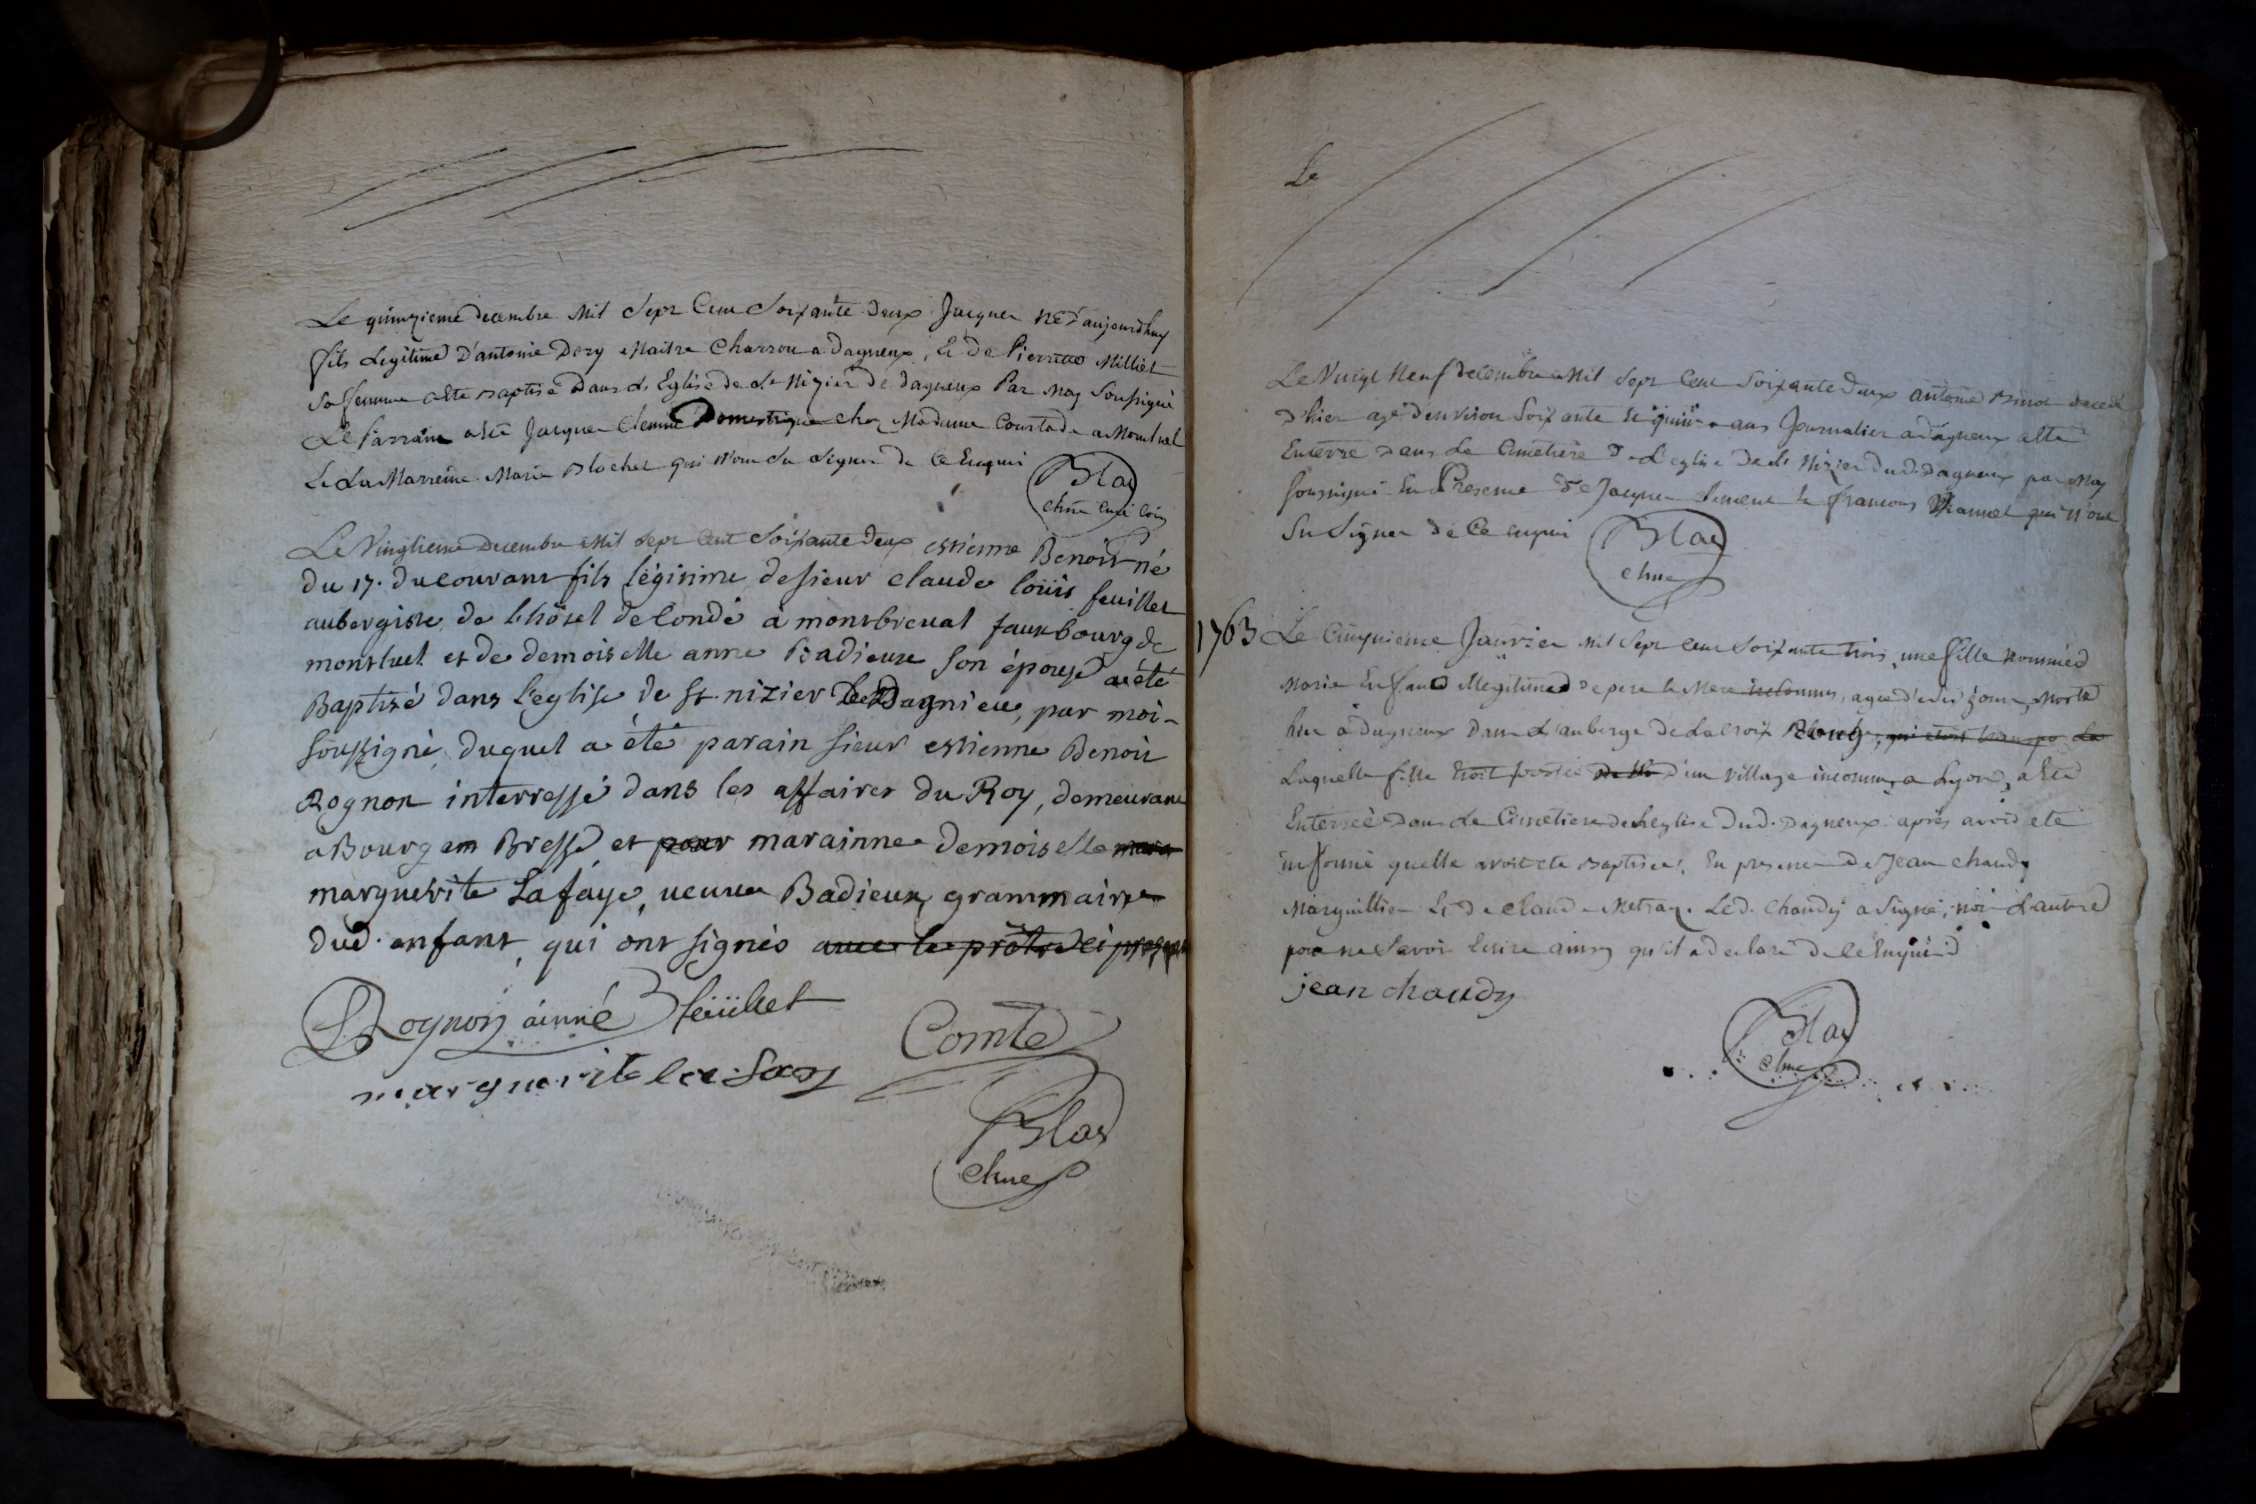 Le quinzieme decembre Mil Sept Cent Soixante deux Jacques né d'aujourdhuy
fils Legitime D'antoine Dory Maitre Charron a dagneux, Et de Pierrette Milliet
Sa femme a Ete Baptisé Dans L'Eglise de St Nizier de dagneux Par Moy Soussigné
Le Parrain a Eté Jacques Clement Domestique chez Madame Courtade a Montluel
Et La Marreine Marie Blochet qui N'ont Su Signer de Ce Enquis
Blachme Curé
Le Vingtieme Decembre Mil Sept Cent Soixante deux estienne Benoit né
du 17. du courant fils légitime de sieur claude loüis feuillet
aubergiste de l'hôtel de Condé à montbreval fauxbourg de
montluel et de demoiselle anne Badieux son épouse a été
Baptisé dans l'eglise de St nizier de Dagnieu, par moi
soussigné, duquel a été parain sieur estienne Benoit
Rognon interressé dans les affaires du Roy, demeurant
à Bourg en Bresse et pour marainne demoiselle
marguerite Lafaye, veuve Badieux, grammaire
dud. enfant, qui ont signés avec le prêtre ci present
Rognon ainné feüillet
Comte
marguerite la fay
Blachme
Le
Le Vingt Neuf decembre Mil Sept Cent Soixante Deux antoine Binot decedé
d'hier agé d'environ Soixante Et quinze ans Journalier a dagneux a Eté
Enterré dans Le Cimetiere De L'eglise de St Nizier dud. dagneux par Moy
Soussigné En Presence de Jacques Clement Et francois qui N'ont
Su Signer de Ce enquis
Blachme
1763 Le Cinquieme Janvier Mil Sept Cent Soixante trois, une fille Nommée
Marie Enfant Illegitime de pere Et Mere inconnus, agée de dix jours, Morte
hier à Dagneux Dans L'auberge de La croix Blanche, qui etoit
Laquelle fille Etoit portée d'un village inconnu, a Lyon, a Eté
Enterreé Dans Le Cimetiere de L'eglise Dud. Dagneux aprés avoir eté
informé quelle avoit ete Baptisée, En presence De Jean chaudy
Marguillier Et De Claude Metray. Led. Chaudy a Signé, non L'autre
pour ne Savoir Ecrire ainsy qu'il a declaré de Ce Enquis
jean chaudy
Blachme